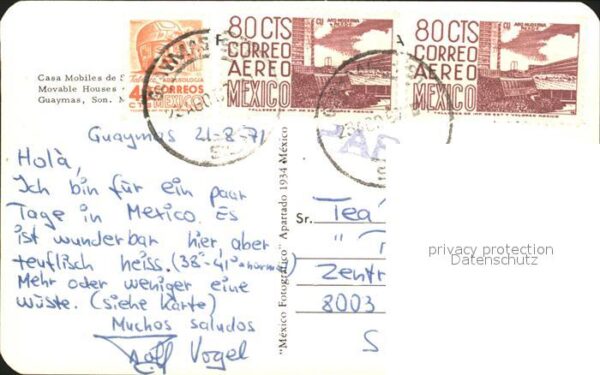 80 CTS
CORREO
AEREO
MEXICO
80 CTS
CORREO
AEREO
MEXICO
ARQUEOLOGIA
CORREOS
MEXICO
Casa Mobiles de S
Movable Houses
Guaymas, Son. M
Guaymas 21-8-71
Holà,
Ich bin für ein paar
Tage in Mexico. Es
ist wunderbar hier, aber
teuflisch heiss. (38°-41°
Mehr oder weniger eine
wüste. (siehe Karte)
Muchos saludos
Rolf Vogel
"México Fotográfico" Apartado 1934 México
Sr. Teá
" T
Zentr
8003
S
privacy protection
Datenschutz